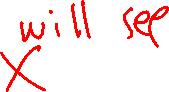 will see
X